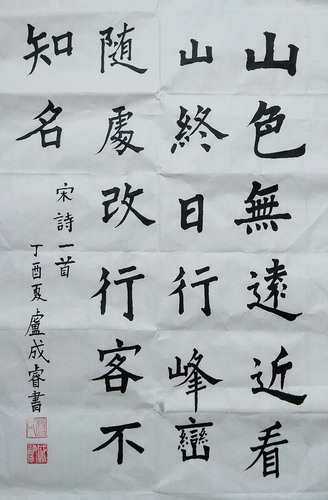 山色無遠近看
山終日行峰巒
随處改行客不
知名
宋詩一首
丁酉夏盧成睿書